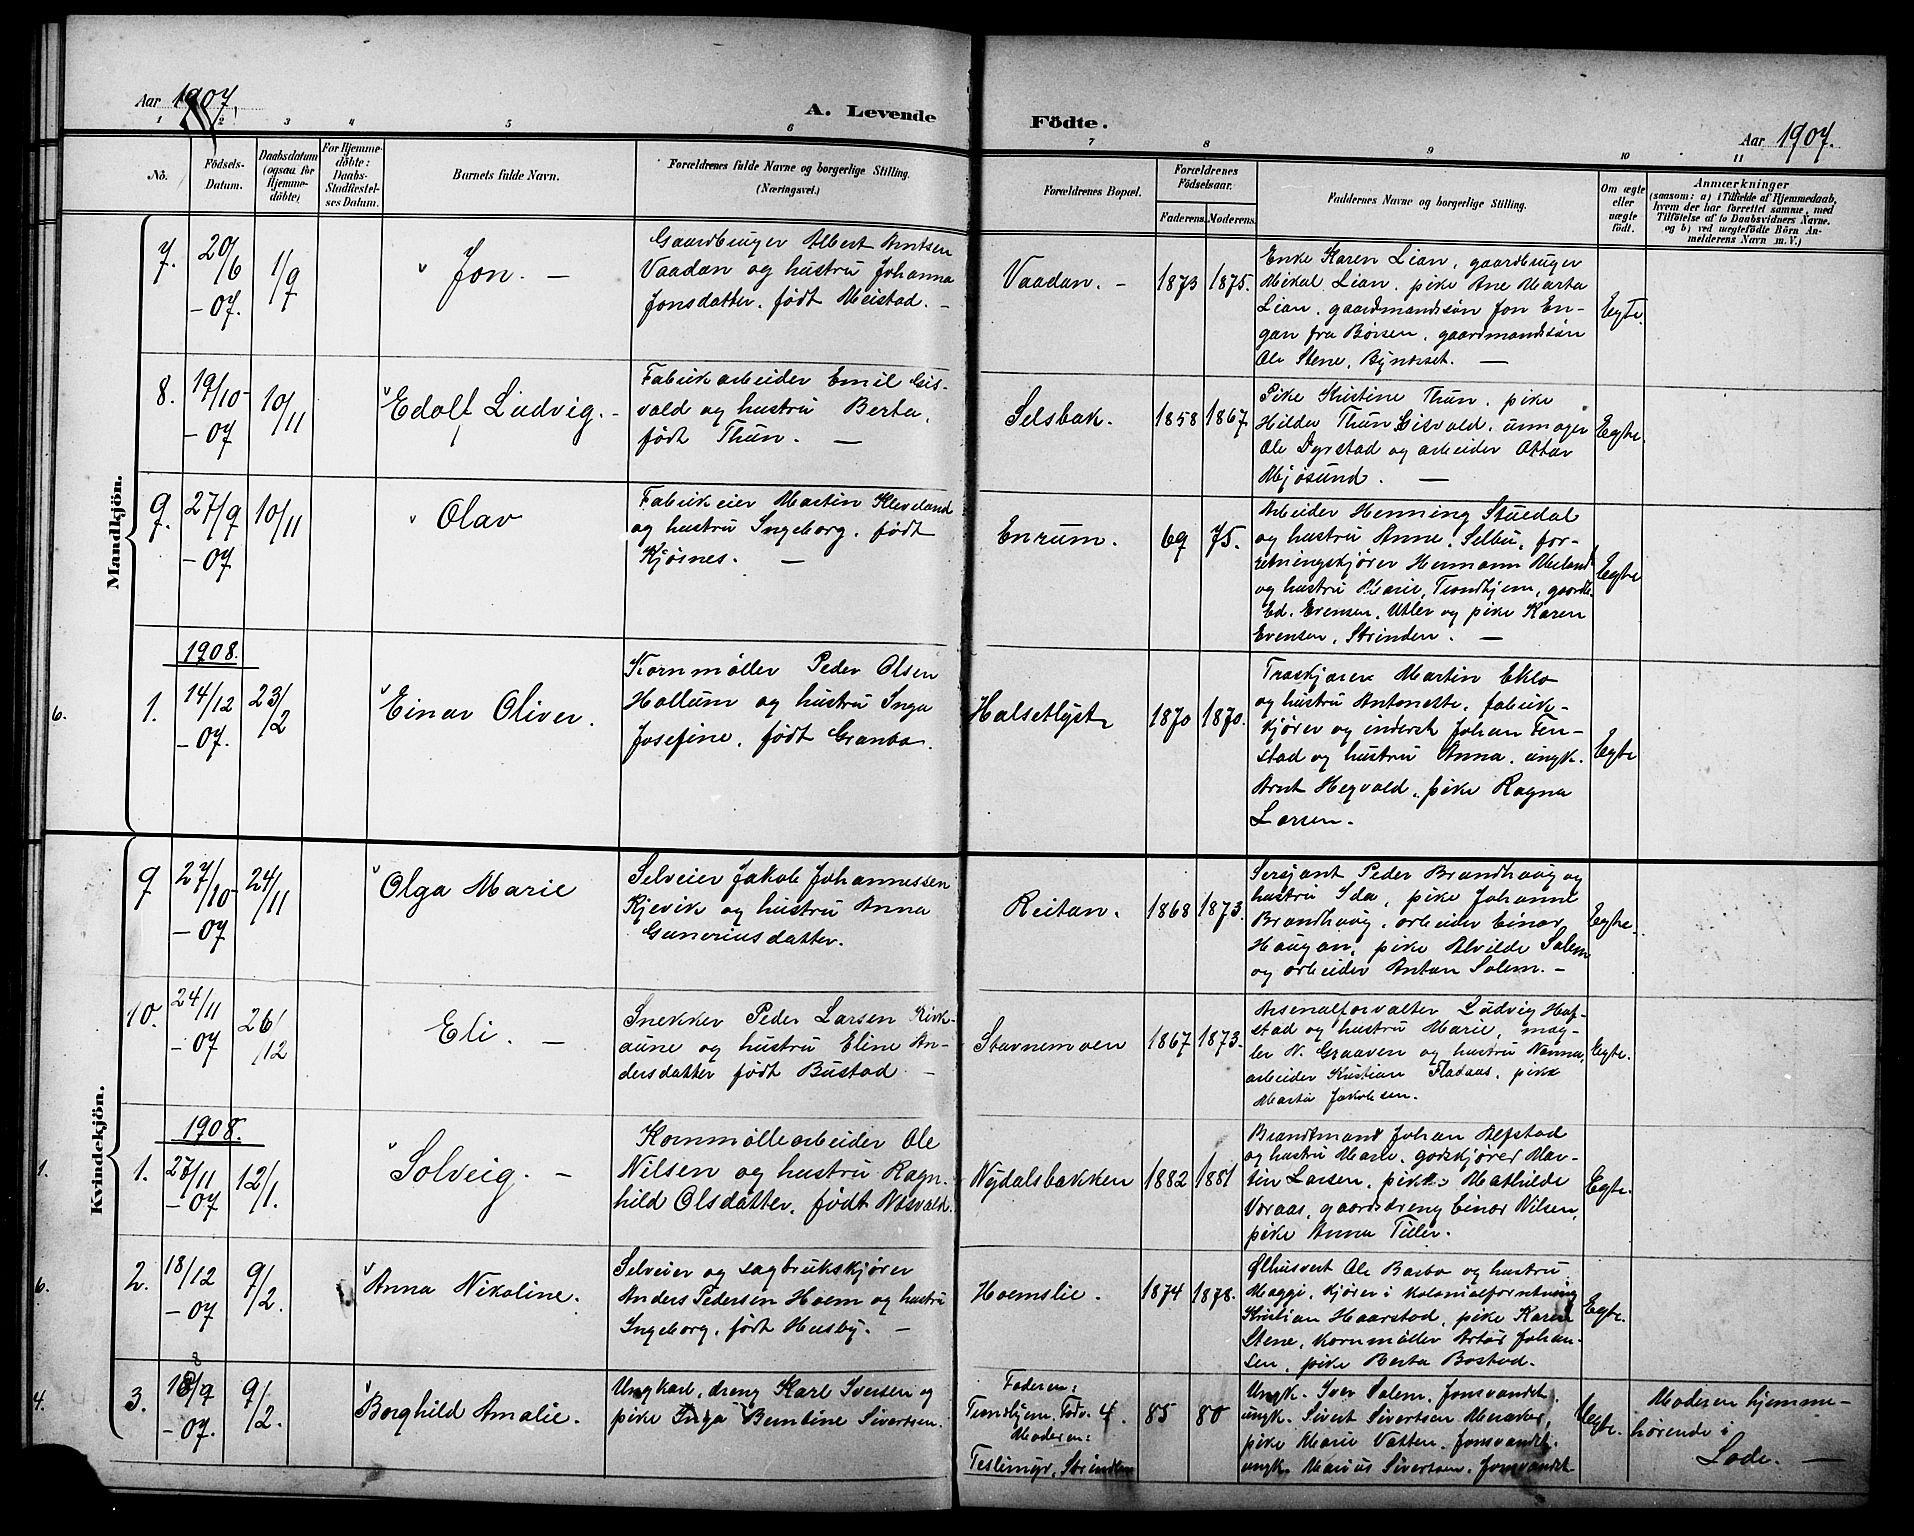 Aar 1907. A. Levende Födte. Aar 1907.
1 2 3 4 5 6 7 8 9 10 11
No.
Födsels-
Datum.
Daabsdatum
(ogsaa for
Hjemme-
döbte)
For Hjemme-
döbte:
Daabs-
Stadfæstel-
ses Datum.
Barnets fulde Navn.
Forældrenes fulde Navne og borgerlige Stilling.
(Næringsvei.)
Forældrenes Bopæl.
Forældrenes
Födselsaar.
Faderens. Moderens.
Faddernes Navne og borgerlige Stilling.
Om ægte
eller
uægte
födt.
Anmærkninger
(saasom: a) i Tilfælde af Hjemmedaab,
hvem der har forrettet samme, med
Tilföielse af to Daabsvidners Navne.
og b) ved uægtefödte Börn An-
melderens Navn m. V.)
Mandkjön.
7. 20/6 -07. 1/9
Jon. —
Gaardbruger Albert Arntsen
Vaadan og hustru Johanna
Jonsdatter, født Meistad. —
Vaadan. — 1873 1875.
Enke Karen Lian, gaardbruger
Mikal Lian, pike Ane Marta
Lian, gaardmandssøn Jon En-
gan fra Børsen, gaardmandssøn
Ole Stene, Bynesset. —
Egte.
8. 19/10 -07 10/11
Edolf Ludvig. —
Fabrikarbeider Emil Gis-
vold og hustru Berta,
født Thun. —
Selsbak. 1858 1867.
Pike Kristine Thun, pike
Hilda Thun Gisvold, urmager
Ole Dyrstad og arbeider Ottar
Mjøsund. —
Egte.
9. 27/9 -07 10/11
Olav
Fabrikeier Martin Kleveland
og hustru Ingeborg, født
Kjøsnes. —
Enrum. 69 75.
Arbeider Henning Stuedal
og hustru Anne, Selbu, for-
retningskjører Hermann Meland
og hustru Marie, Trondhjem, gaardbr.
Ed. Evensen, Utler og pike Karen
Evensen, Strinden. —
Egte
1908.
6. 1. 14/12 -07. 23/2
Einar Oliver.
Kornmøller Peder Olsen
Hallum og hustru Inga
Josefine, født Granbo.
Halsetlyst 1870 1870.
Martin Eklo
og hustru Antonette, fabrik-
kjører og inderst Johan Ten-
stad og hustru Anna, ungk.
Arnt Hegvold, pike Ragna
Larsen.
Egte
Kvindekjön.
9 27/10 -07 24/11
Olga Marie
Selveier Jakob Johannessen
Kjevik og hustru Anna
Guneriusdatter.
Reitan. 1868 1873.
Sersjant Peder Brandhaug og
hustru Ida, pike Johanne
Brandhaug, arbeider Einar
Haugan, pike Alvilde Solem
og arbeider Anton Solem. —
Egte.
10. 24/11 -07 26/12
Eli. —
Snekker Peder Larsen Kirk-
aune og hustru Eline An-
dersdatter født Bustad —
Stavnemoen 1867 1873.
Arsenalforvalter Ludvig Haf-
stad og hustru Marie, mæg-
ler N. Graaven og hustru Nanna,
arbeider Kristian Fladaas, pike
Marta Jakobsen.
Egte.
1908.
1. 1. 27/11 -07 12/1.
Solveig. —
Kornmøllearbeider Ole
Nilsen og hustru Ragn-
hild Olsdatter, født Næsvold.
Nydalsbakken 1882 1881
Brandtmand Johan Alfstad
og hustru Marie, godskjører Mar-
tin Larsen, pike Mathilde
Voraas, gaardsdreng Einar Nilsen,
pike Anna Tiller.
Egte.
6. 2. 18/12 -07 9/2.
Anna Nikoline.
Selveier og sagbrukskjører
Anders Pedersen Hoem og hustru
Ingeborg, født Husby. —
Hoemslie. 1874 1878.
Ølhusvert Ole Barbo og hustru
Maggi, kjører i kolonialforretning
Kristian Haarstad, pike Karen
Stene, kornmøller Artur Johan-
sen, pike Berta Bostad.
Egte.
4. 3. 18/9 -07. 9/2.
Borghild Amalie.
Ungkarl, dreng Karl Iversen og
pike Inga Bentine Sivertsen.
Faderen:
Trondhjem, 4.
Moderen:
Teslimyr, Strinden
85 80
Ungk. Iver Solem, Jonsvandet,
ungk. Sivert Sivertsen Meraker,
pike Marie Vatten, Jonsvandet.
ungk. Marius Sivertsen, Jonsvandet
Uegte.
Moderen hjemme-
hørende i
Lade. —